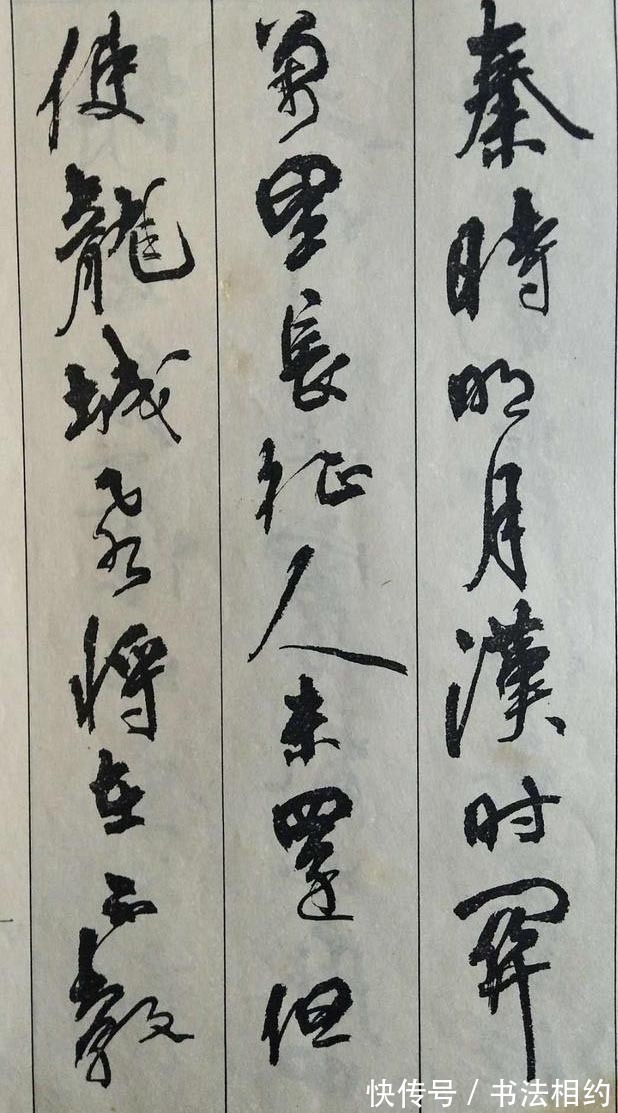 秦時明月漢时關
萬里長征人未還但
使龍城飛将在不教
快传号 / 书法相约